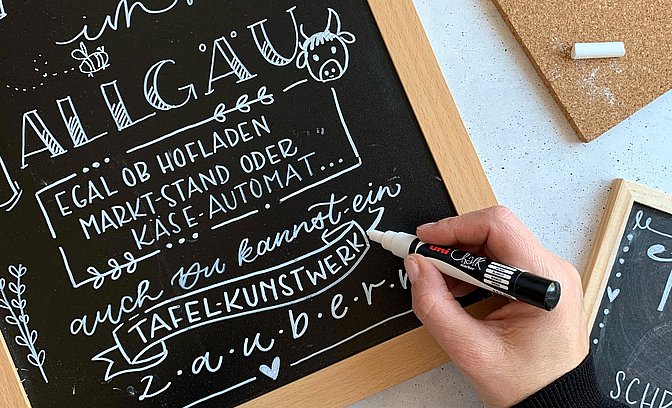 im
ALLGÄU
EGAL OB HOFLADEN
MARKT-STAND ODER
KÄSE-AUTOMAT...
auch Du kannst ein
TAFEL-KUNSTWERK
z·a·u·b·e·r·n
uni
Chalk
marker
SCH